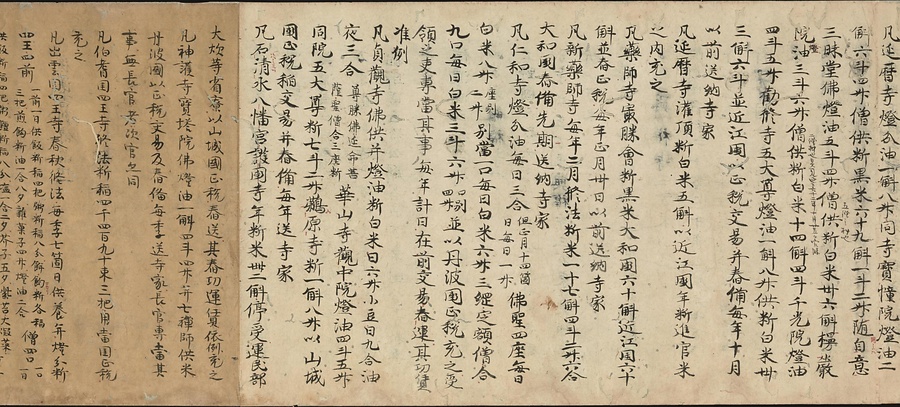 凡延暦寺燈分油一斛八斗同寺寶幢院燈油二
斛六斗四升僧供新黒米六十九斛一斗二升随自意
三昧堂佛燈油五斗四升僧供新白米卅六斛楞嚴
院油三斗六升僧供新白米十四斛四斗千光院燈油
四斗五升勸修寺五大尊燈油一斛八升供新白米卅
三斛六斗並近江國以正税交易并舂備毎年十月
以前送納寺家
凡延暦寺灌頂新白米五斛以近江國年新進官米
之内充之
凡藥師寺最勝會新黒米大和國六十斛近江國六十
斛並舂正税毎年正月卅日以前送納寺家
凡新藥師寺毎年二月修法新米一十七斛四斗二升六合
大和國舂備先期送納寺家
凡仁和寺燈分油毎日三合 佛聖四座毎日
白米八升二升別當一口毎日白米六升三綱定額僧合
九口毎日白米三斗六升四升別並以丹波國正税充之受
領之吏專當其事毎年計日在前交易舂運其功賃
准例
凡貞觀寺佛供并燈油新白米日六升小豆日九合油
夜三合 華山寺觀中院燈油四斗五升
同院五大尊新七斗二升 原寺新一斛八升以山城
國正税稲交易并舂備毎年送寺家
凡石清水八幡宮護國寺年新米卅二斛停受運民部
大炊等省寮以山城國正税舂送其舂功運賃依例充之
凡神護寺寶塔院佛燈油一斛四斗四升并七禅師供米
丹波國以正税交易及舂備毎季送寺家長官專當其
事無長官者次官之同
凡伯耆国四王寺修法新稲四千四百九十束三把用當国正税
充之
凡出雲国四王寺春秋修法毎季七箇日供養并燈分新
四王四前